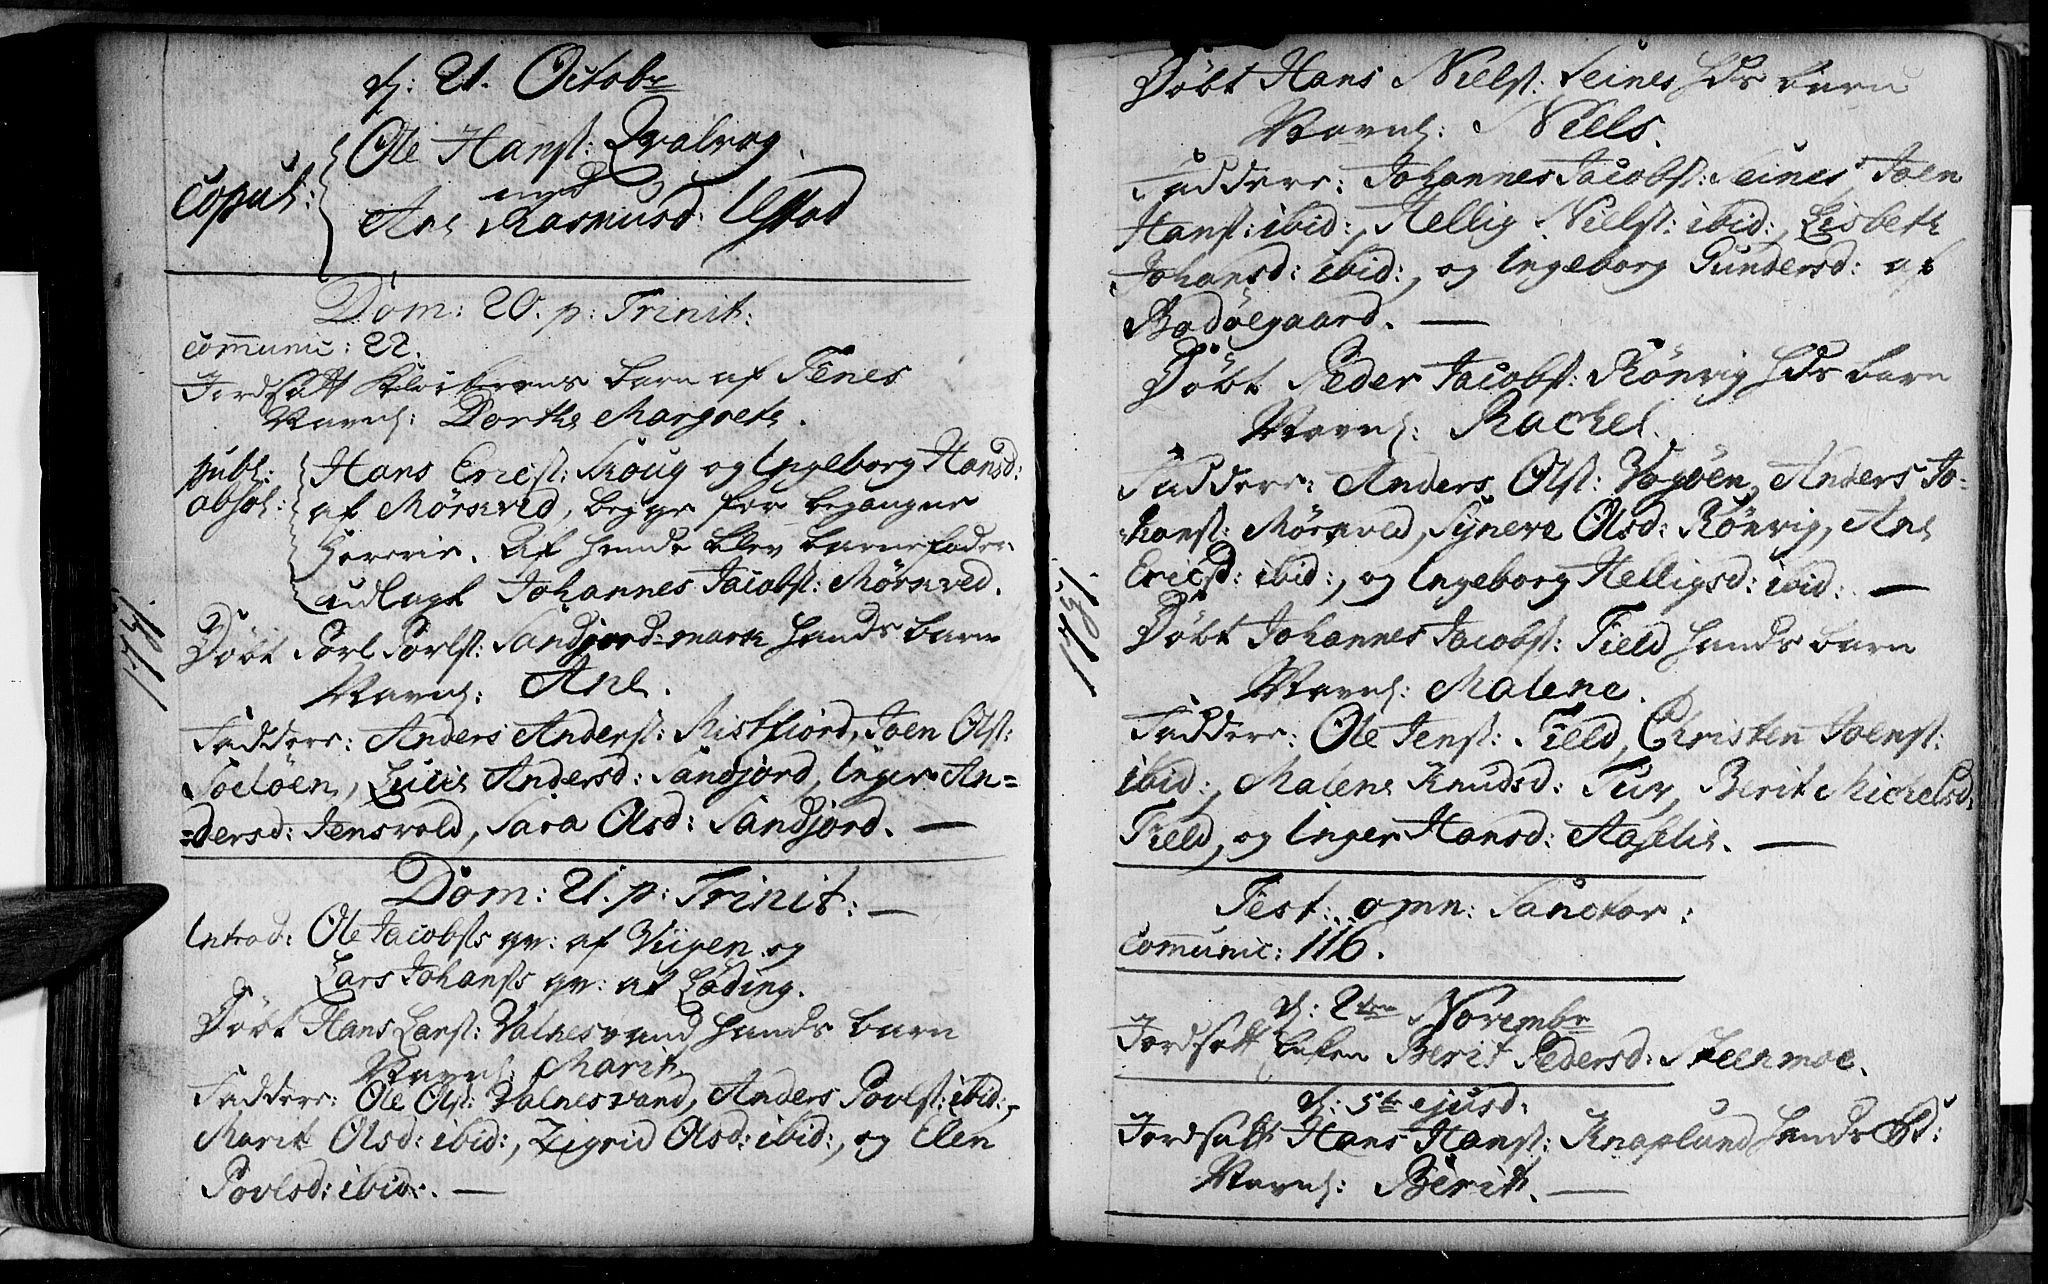 d: 21. Octobr
Copul: Ole Hansf: Qvalvog
med
Ane Rasmusd: Ystad
Dom: 20. p: Trinit:
communic: 22.
Jordsatt Klokerens barn af Fenes
Navnl: Dorthe Margrete.
publ: absol: Hans Ericsf: Skoug og Ingeborg Hansd:
af Mörsved, begge for begangne
Horerie. Af hende blev barnefader
udlagt Johannes Jacobsf: Mörsved.
Döbt Povl Povlsf: Sandjord=mark hands barn
Navnl: Ane.
Faddere: Anders Andersf: Mistfiord, Joen Olsf:
Soelöen, Lucie Andersd: Sandjord, Inger An=
=dersd: Jensvold, Sara Olsd: Sandjord. —
Dom: 21. p: Trinit: —
Introd: Ole Jacobsfs qv: af Viigen og
Lars Johansfs qv: af Löding.
Döbt Hans Larsf: Valnesvand hands barn
Navnl: Marit
Faddere: Ole Olsf: Valnesvand, Anders Povelsf: ibid:,
Marit Olsd: ibid:, Zigrid Olsd: ibid:, og Elen
Povlsd: ibid:. —
1751.
Döbt Hans Nielsf: Seines hds barn
Navnl: Niels.
Faddere: Johannes Jacobsf: Seines, Joen
Hansf: ibid:, Hellig Nielsf: ibid:, Lisbeth
Johansd: ibid:, og Ingeborg Gundersd: af
Bodöegaard. —
Döbt Peder Jacobsf: Rönvig hds barn
Navnl: Rachel.
Faddere: Anders Olsf: Vogöen, Anders Jo-
hansf: Mörsved, Synera Olsd: Rönvig, Ane
Ericsd: ibid:, og Ingeborg Helligsd: ibid: —
Döbt Johannes Jacobsf: Field hands barn
Navnl: Malene.
Faddere: Ole Jensf: Field, Christen Joensf:
ibid:, Malene Knudsd: Tuv, Berit Michelsd:
Field, og Inger Hansd: Aaselie. —
Fest: omn: Sanctor:
communic: 116.
d: 2den Novembr
Jordsatt Enken Berit Pedersd: Steenmoe.
d: 5te ejusd:
Jordsatt Hans Hansf: Knaplund hands
Navnl: Berit. —
1751.